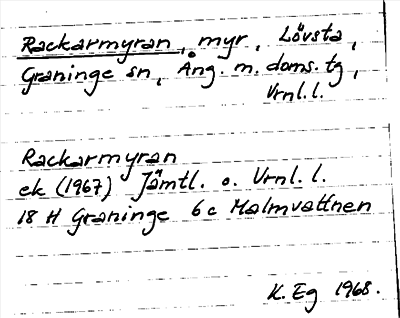 Rackarmyran, myr, Lövsta,
Graninge sn, Ång. m. doms. tg,
Vrnl. l.
Rackarmyran
ek (1967) Jämtl. o. Vrnl. l.
18 H Graninge 6c Malmvattnen
K. Eg 1968.